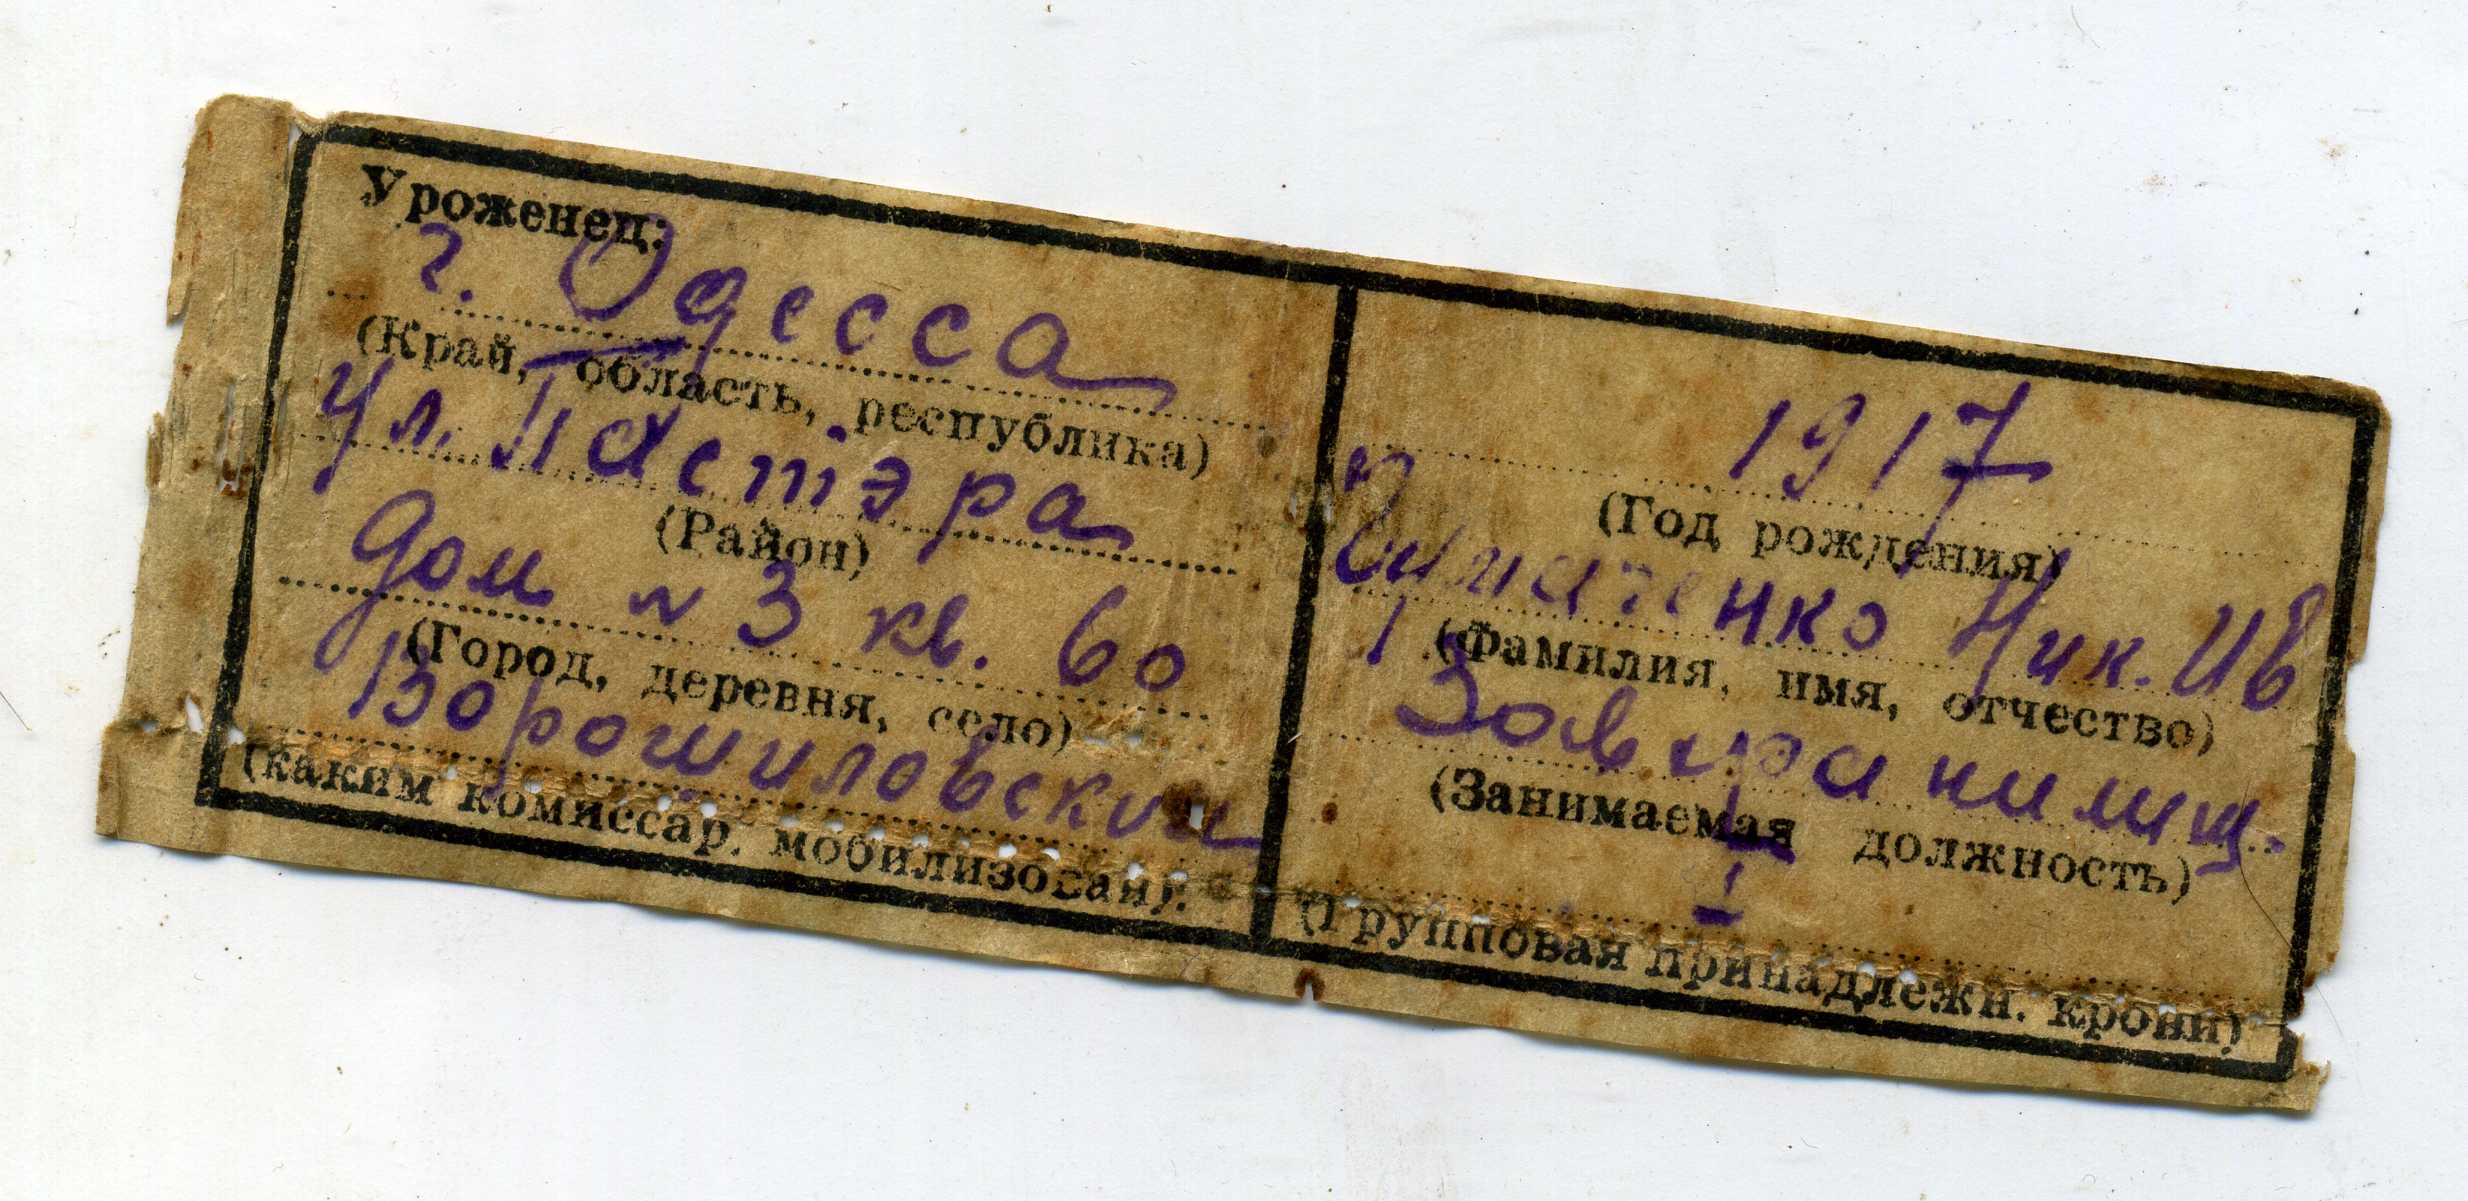 Уроженец:
г. Одесса
(Край, область, республика)
ул. Пастэра
(Район)
дом № 3 кв. 60
(Город, деревня, село)
Ворошиловский
(каким комиссар. мобилизован).
1917
(Год рождения)
Ник. Ив
(Фамилия, имя, отчество)
(Занимаемая должность)
I
(Групповая принадлежн. крови)